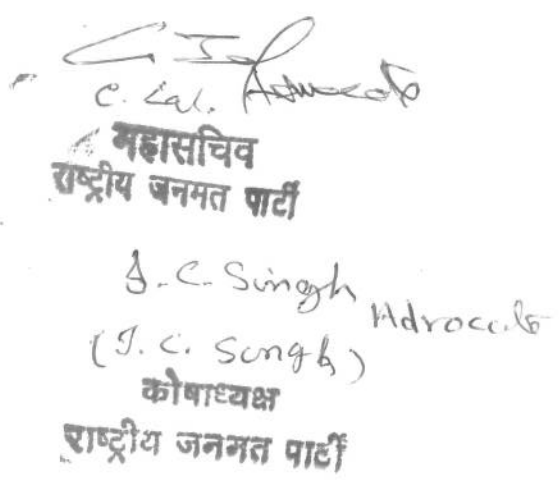 C. Lal. Advocate
महासचिव
राष्ट्रीय जनमत पार्टी
J.C. Singh Advocate
(J.C. Singh)
कोषाध्यक्ष
राष्ट्रीय जनमत पार्टी